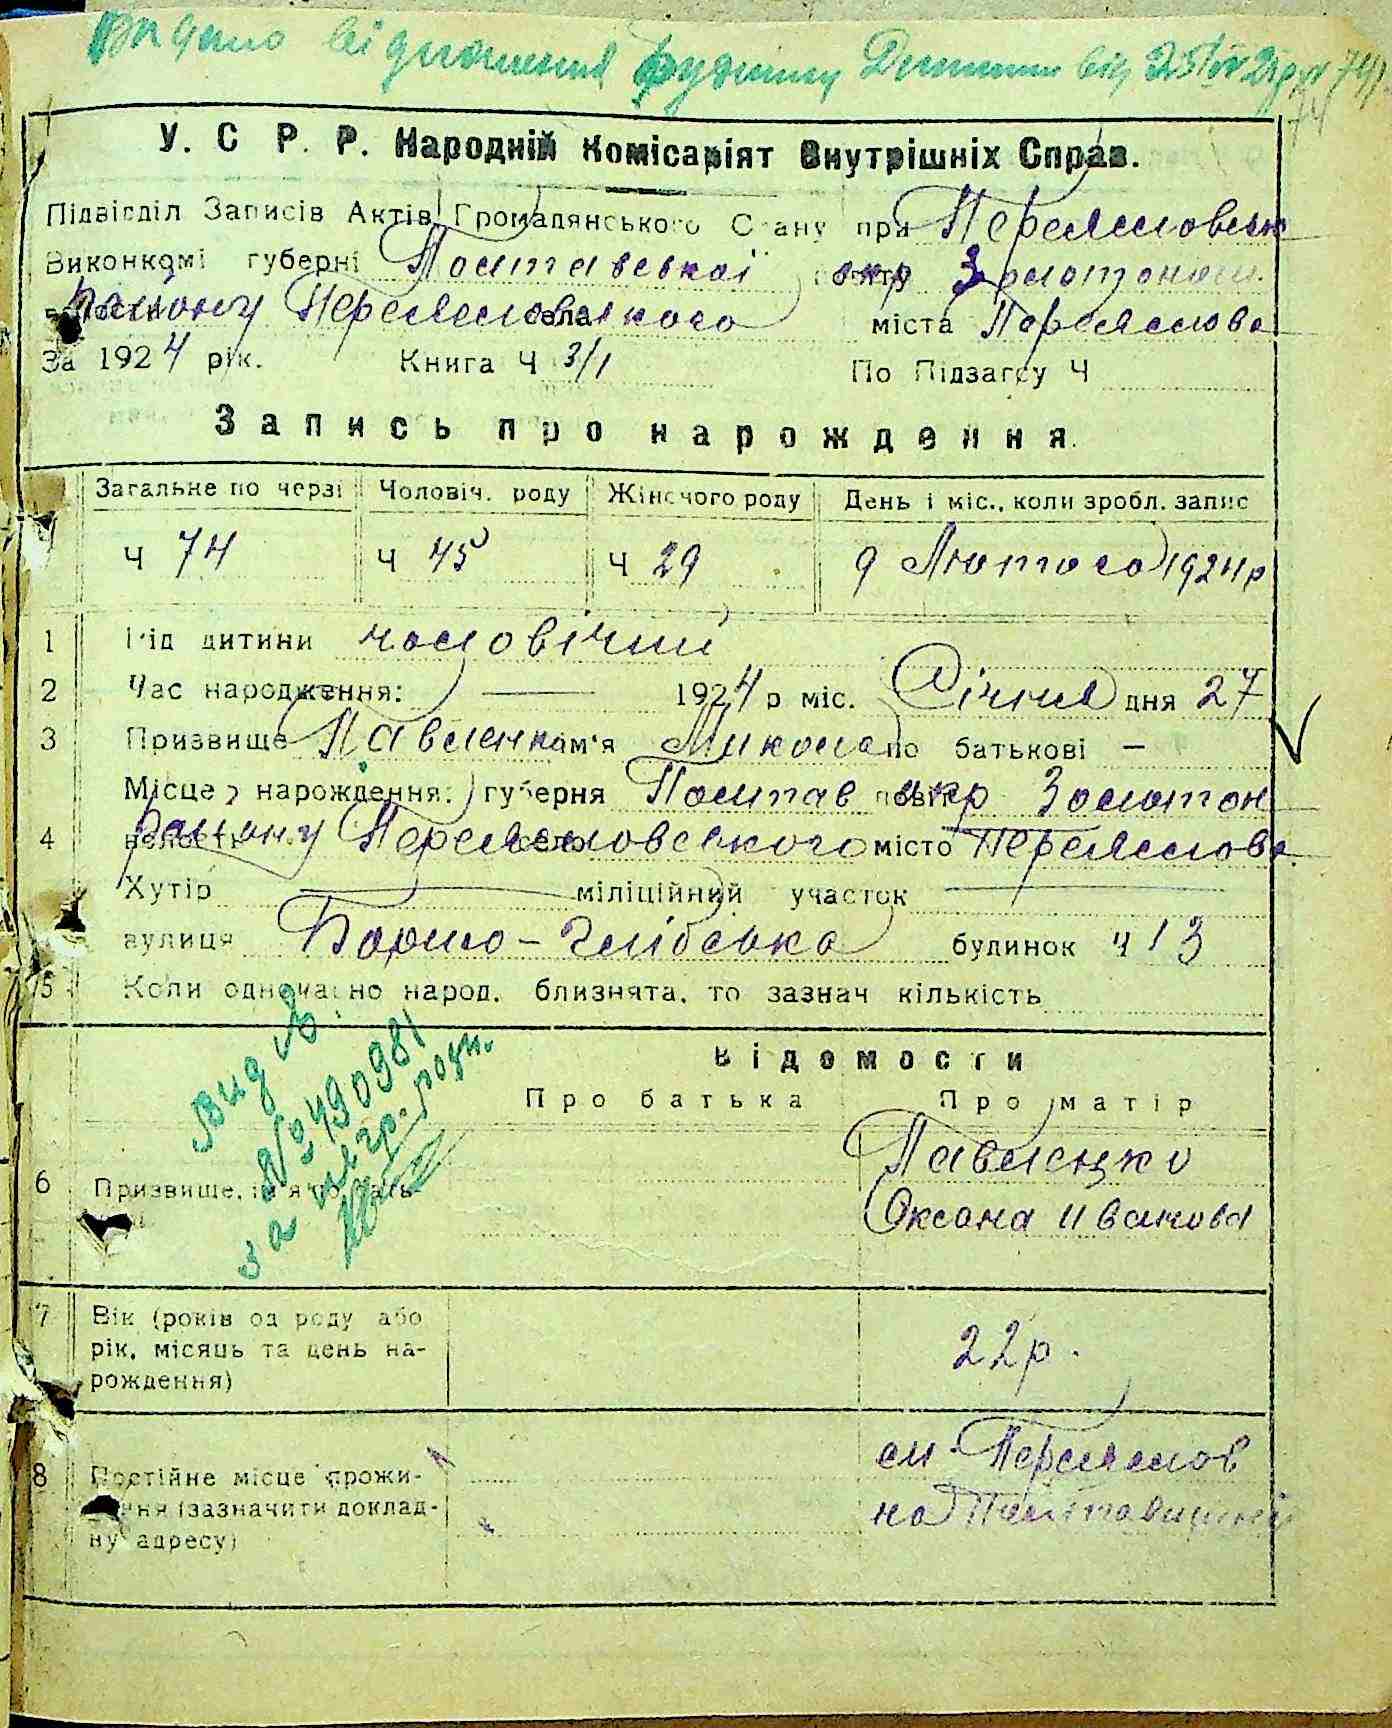 Видано відношення будинку Дитини від 25/IV
У. С Р. Р. Народній Комісаріят Внутрішніх Справ.
Підвідділ Записів Актів Громадянського Стану при Переяславськ
Виконкомі губерні Полтавської окр Золотонош.
Району Переяславського села міста Переяслова
За 1924 рік. Книга Ч 3/1 По Підзагсу Ч
Запись про нарождення.
Загальне по черзі Чоловіч. роду Жіночого роду День і міс., коли зробл. запис
Ч 74 Ч 45 Ч 29 9 Лютого 1924 р
1 Рід дитини чоловічий
2 Час народження: — 1924 р міс. Січня дня 27
3 Призвище Павленко ім'я Микола по батькові —
Місце нарождення: губерня Полтав окр Золотон
4 Району Переясловського місто Переяслова
Хутір — міліційний участок —
вулиця Борисо-Глібська будинок ч 13
5 Коли одночасно народ. близнята, то зазнач кількість
Відомости
Про батька Про матір
Вид
№ 490981
6 Призвище, Павленко
Оксана Иванова
7 Вік (років од роду або
рік, місяць та день на-
рождення) 22 р.
8 Постійне місце прожи-
ння (зазначити доклад-
ну адресу) см. Переяслов
на Полтавщині